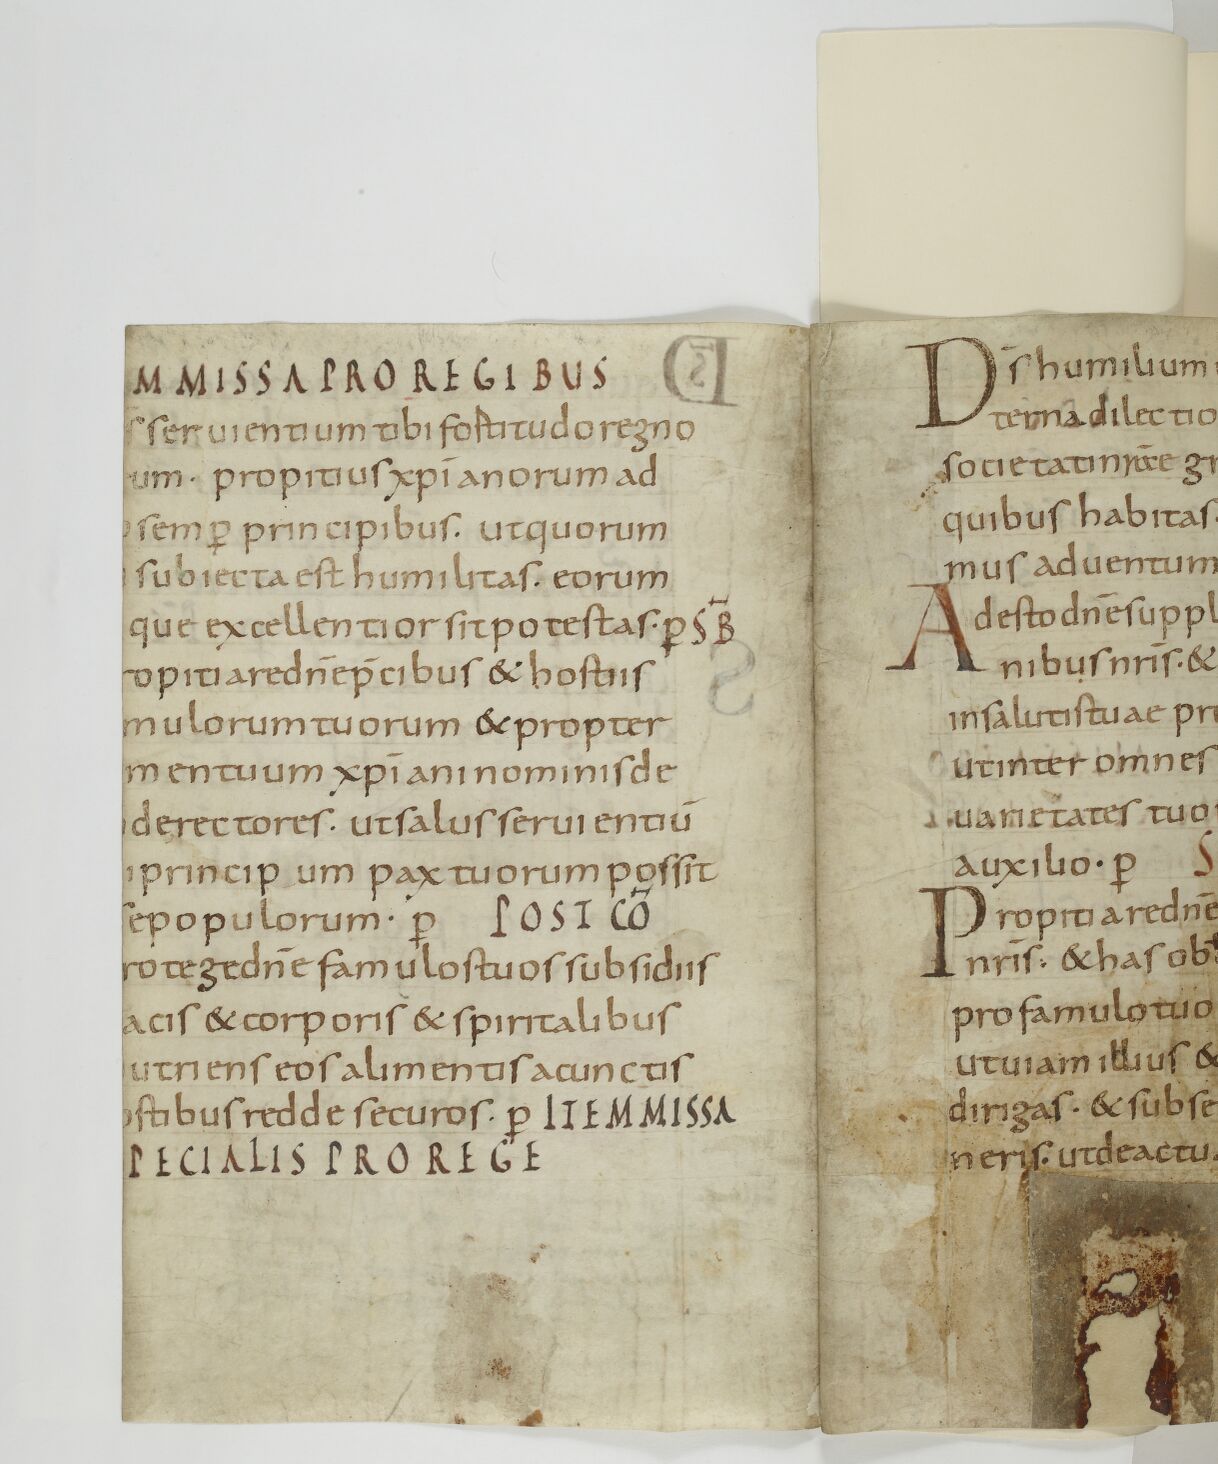 M MISSA PRO REGIBUS
s seruientium tibi fortitudo regno
um. propitius xp̄ianorum ad
o semꝑ principibus. ut quorum
i subiecta est humilitas. eorum
que excellentior sit potestas. ꝑ S B̄
ropitiare dn̄e p̄cibus & hostiis
mulorum tuorum & propter
mentuum xp̄iani nominis de
de rectores. ut salus seruientiū
i princip um pax tuorum possit
se populorum. ꝑ POST CŌ
rotege dn̄e famulos tuos subsidiis
acis & corporis & spiritalibus
utriens eos alimentis a cunctis
ostibus redde securos. ꝑ ITEM MISSA
PECIALIS PRO REGE
D̄s humilium
terna dilectio
societatin nr̄ae gr
quibus habitas.
mus aduentum
Adesto dn̄e suppl
nibus nr̄is. &
in salutis tuae pr
ut inter omnes
uarietates tuo
auxilio. ꝑ S
Propitiare dn̄e
nr̄is. & has ob
pro famulo tuo
ut uiam illius &
dirigas. & subse
neris. ut de actu